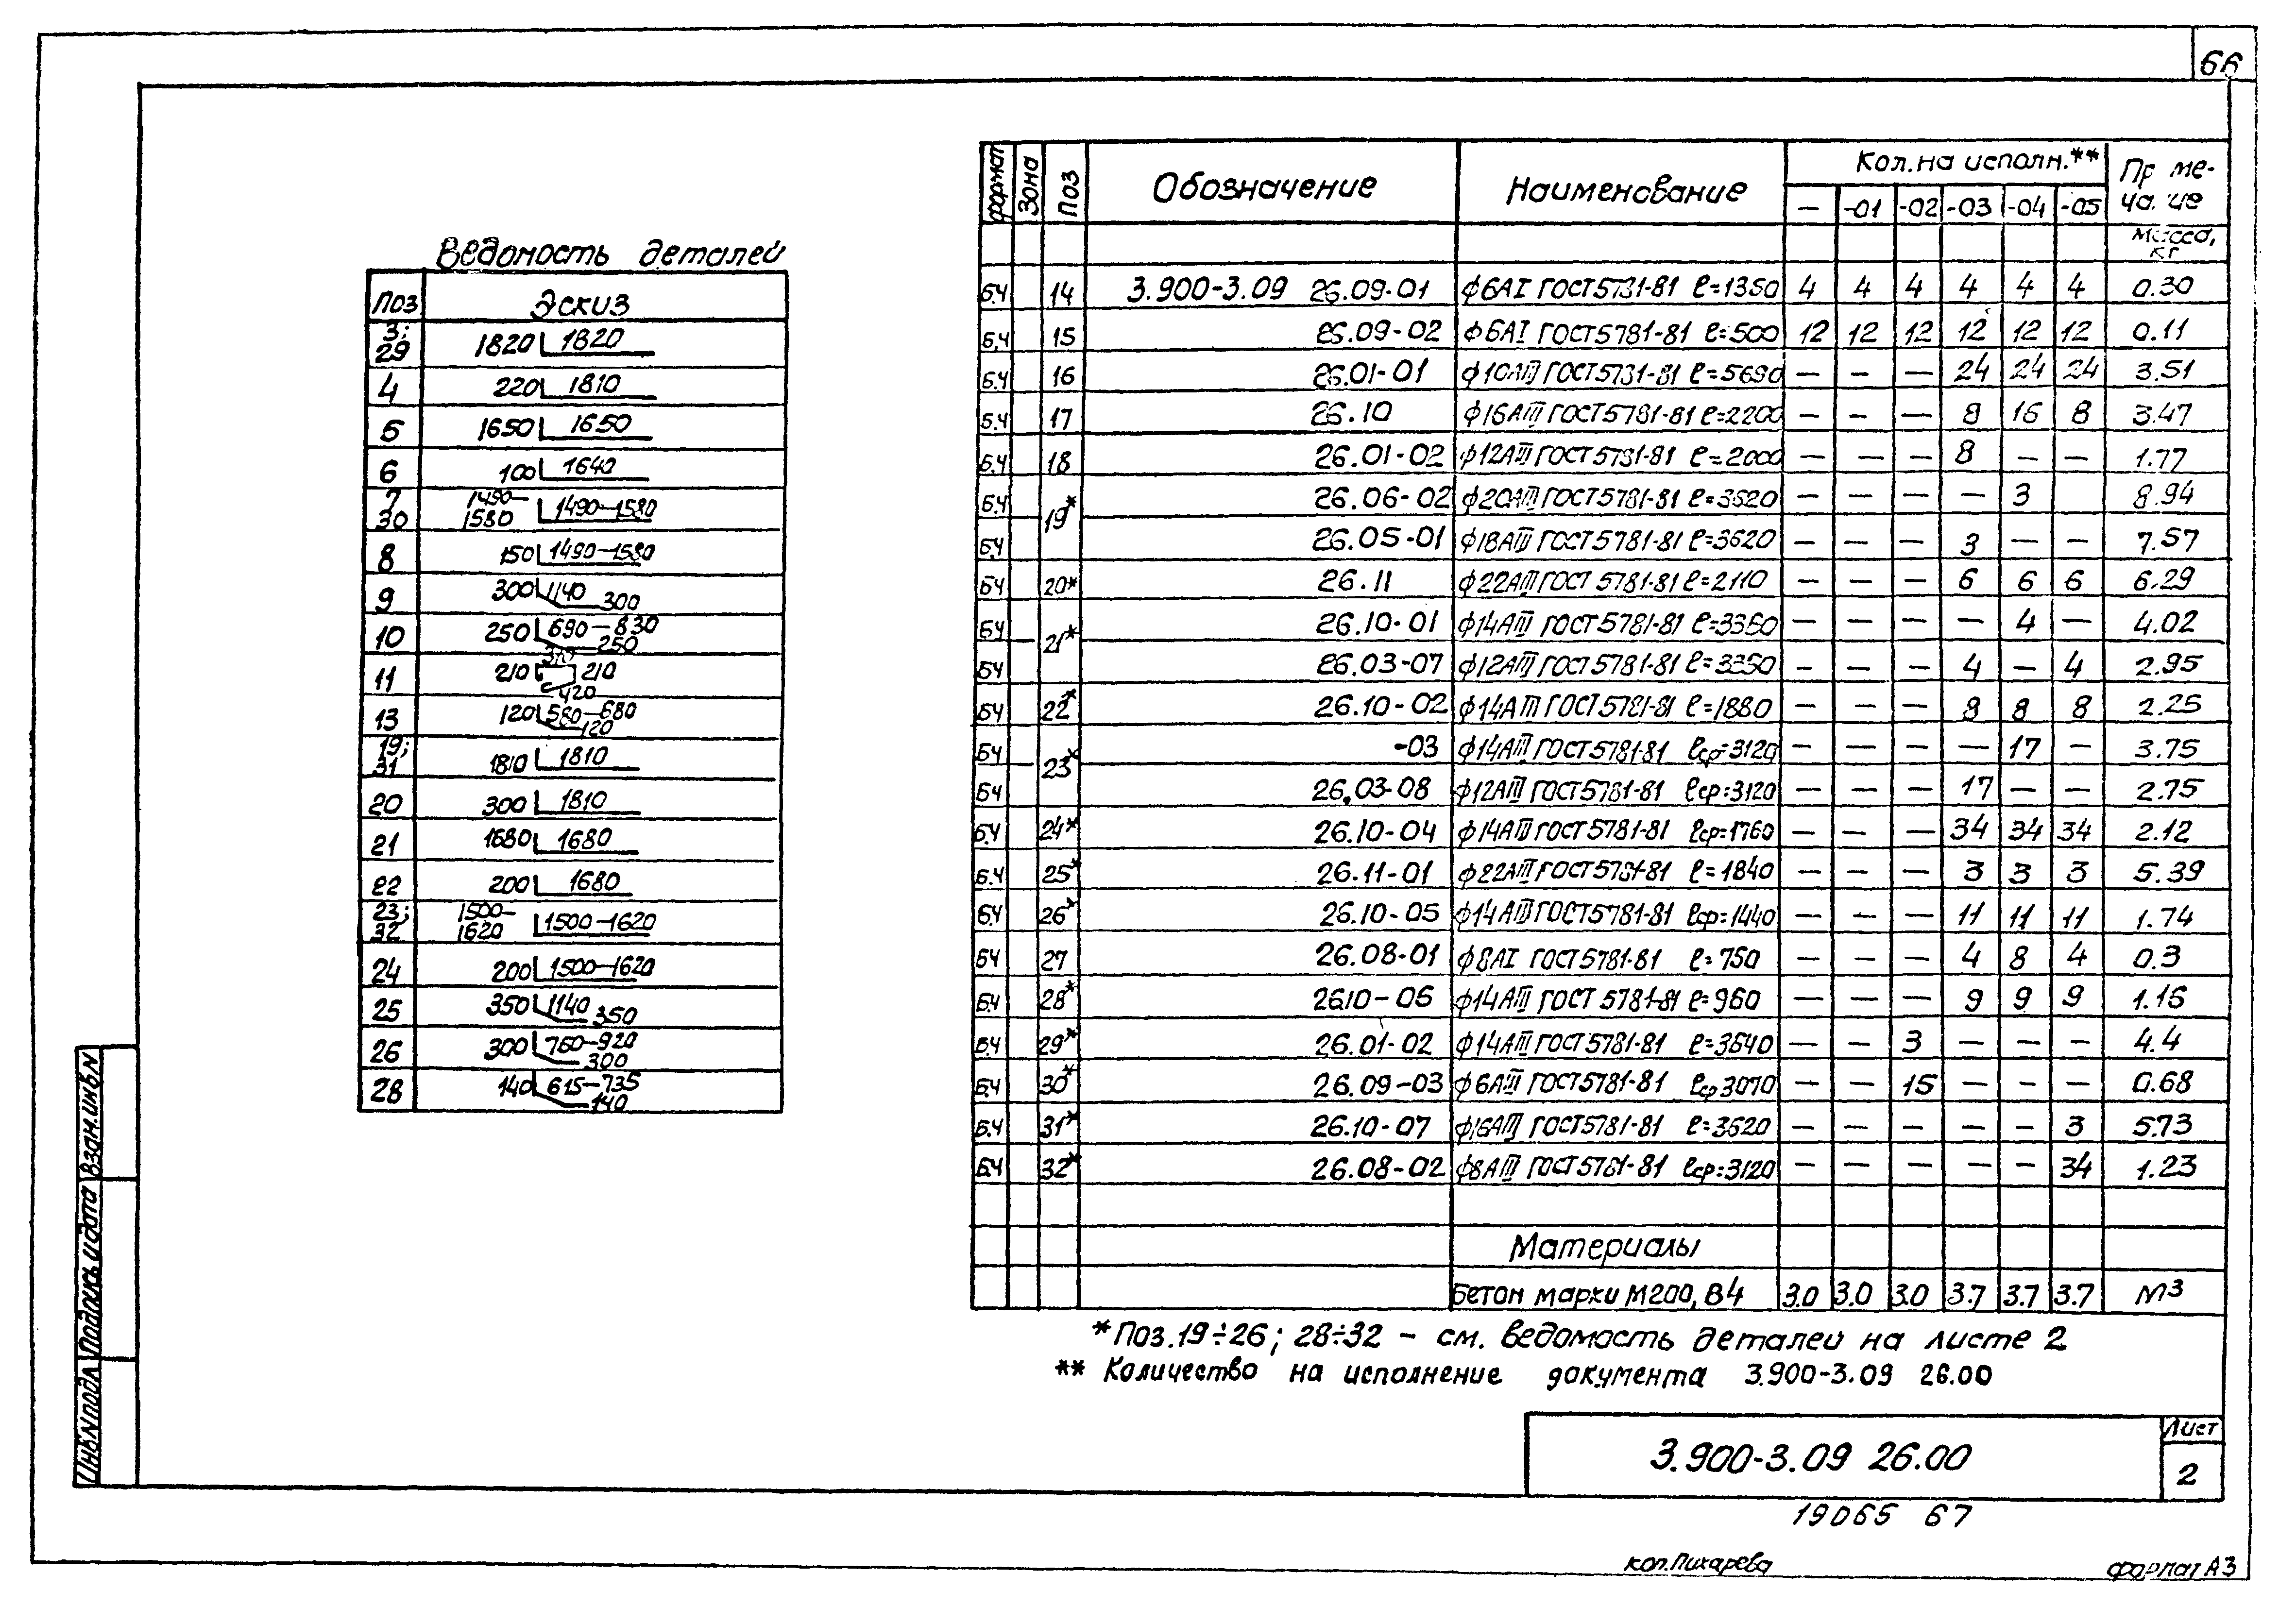 66
Ведомость деталей
Поз Эскиз
3; 29 1820 1820
4 220 1810
5 1650 1650
6 100 1640
7 30 1490-1580 1490-1580
8 150 1490-1580
9 300 1140 300
10 250 690-830 250
11 210 210 420
13 120 580-680 120
19; 31 1810 1810
20 300 1810
21 1680 1680
22 200 1680
23; 32 1500-1620 1500-1620
24 200 1500-1620
25 350 1140 350
26 300 760-920 300
28 140 615-735 140
Формат Зона Поз Обозначение Наименование Кол. на исполн.** Пр ме-ча. ие
— -01 -02 -03 -04 -05
Масса, кг
БЧ 14 3.900-3.09 26.09-01 ф6АI ГОСТ 5781-81 ℓ=1350 4 4 4 4 4 4 0.30
Б.Ч 15 26.09-02 ф6АI ГОСТ 5781-81 ℓ=500 12 12 12 12 12 12 0.11
Б.Ч 16 26.01-01 ф10АIII ГОСТ 5781-81 ℓ=5690 — — — 24 24 24 3.51
Б.Ч 17 26.10 ф16АIII ГОСТ 5781-81 ℓ=2200 — — — 8 16 8 3.47
Б.Ч 18 26.01-02 ф12АIII ГОСТ 5781-81 ℓ=2000 — — — 8 — — 1.77
Б.Ч 19* 26.06-02 ф20АIII ГОСТ 5781-81 ℓ=3620 — — — — 3 8.94
Б.Ч 26.05-01 ф18АIII ГОСТ 5781-81 ℓ=3620 — — — 3 — — 7.57
БЧ 20* 26.11 ф22АIII ГОСТ 5781-81 ℓ=2110 — — — 6 6 6 6.29
БЧ 21* 26.10-01 ф14АIII ГОСТ 5781-81 ℓ=3360 — — — — 4 — 4.02
БЧ 26.03-07 ф12АIII ГОСТ 5781-81 ℓ=3360 — — — 4 — 4 2.95
БЧ 22* 26.10-02 ф14АIII ГОСТ 5781-81 ℓ=1880 — — — 8 8 8 2.25
БЧ 23* -03 ф14АIII ГОСТ 5781-81 ℓср=3120 — — — — 17 — 3.75
БЧ 26.03-08 ф12АIII ГОСТ 5781-81 ℓср=3120 — — — 17 — — 2.75
Б.Ч 24* 26.10-04 ф14АIII ГОСТ 5781-81 ℓср=1760 — — — 34 34 34 2.12
Б.Ч 25* 26.11-01 ф22АIII ГОСТ 5781-81 ℓ=1840 — — — 3 3 3 5.39
Б.Ч 26* 26.10-05 ф14АIII ГОСТ 5781-81 ℓср=1440 — — — 11 11 11 1.74
БЧ 27 26.08-01 ф8АI ГОСТ 5781-81 ℓ=750 — — — 4 8 4 0.3
Б.Ч 28* 26.10-06 ф14АIII ГОСТ 5781-81 ℓ=960 — — — 9 9 9 1.16
Б.Ч 29* 26.01-02 ф14АIII ГОСТ 5781-81 ℓ=3640 — — 3 — — — 4.4
Б.Ч 30* 26.09-03 ф6АIII ГОСТ 5781-81 ℓср3070 — — 15 — — — 0.68
Б.Ч 31* 26.10-07 ф16АIII ГОСТ 5781-81 ℓ=3620 — — — — — 3 5.73
Б.Ч 32* 26.08-02 ф8АIII ГОСТ 5781-81 ℓср=3120 — — — — — 34 1.23
Материалы
Бетон марки М200, В4 3.0 3.0 3.0 3.7 3.7 3.7 м3
* Поз. 19÷26; 28÷32 - см. ведомость деталей на листе 2
** Количество на исполнение документа 3.900-3.09 26.00
3.900-3.09 26.00
Лист
2
19065 67
коп. Пихарева
формат А3
Инв.N подл Подпись и дата Взам.инв.N